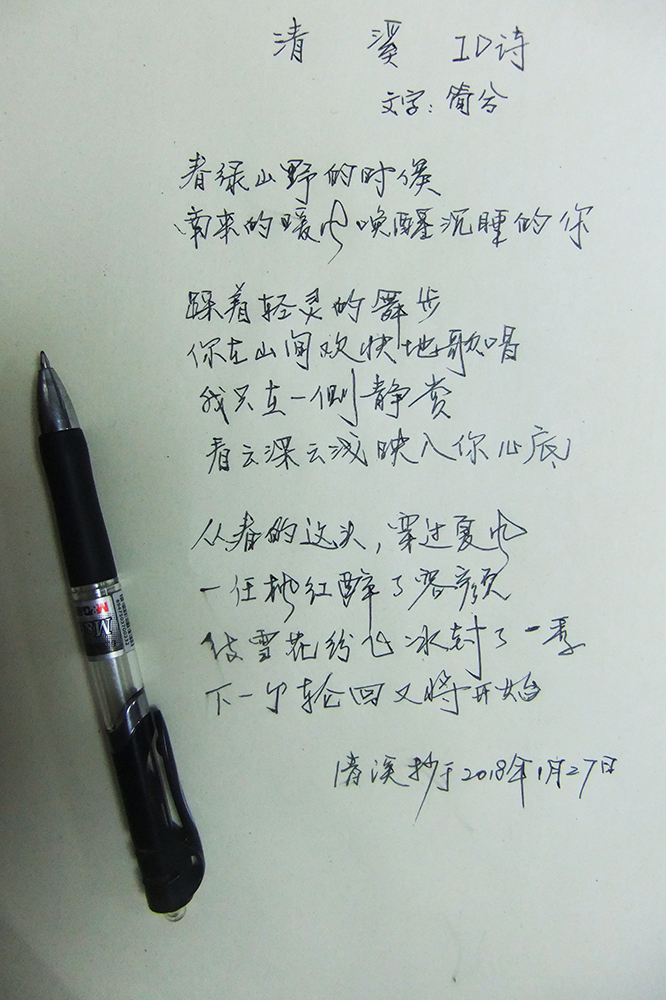 清溪ID诗
文字：简兮
春绿山野的时候
南来的暖风唤醒沉睡的你
踩着轻灵的舞步
你在山间欢快地歌唱
我只在一侧静赏
看云深云浅映入你心底
从春的这头，穿过夏风
一任桃红醉了容颜
待雪花纷飞冰封了一季
下一个轮回又将开始
清溪抄于2018年1月27日
M&G